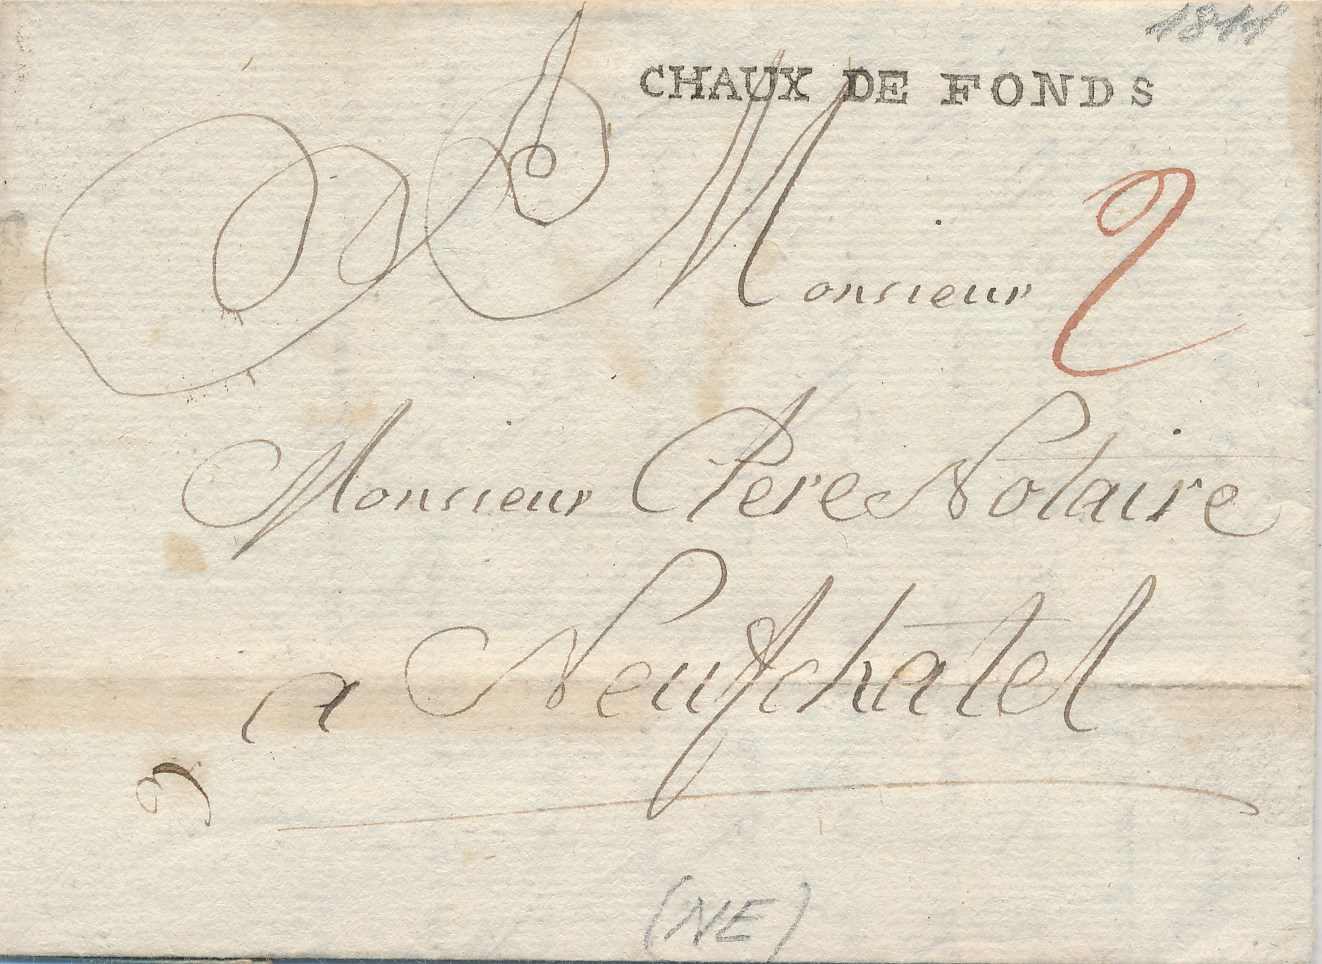 1811
CHAUX DE FONDS
Monsieur 2
Monsieur Pere Notaire
a Neufchatel
(NE)